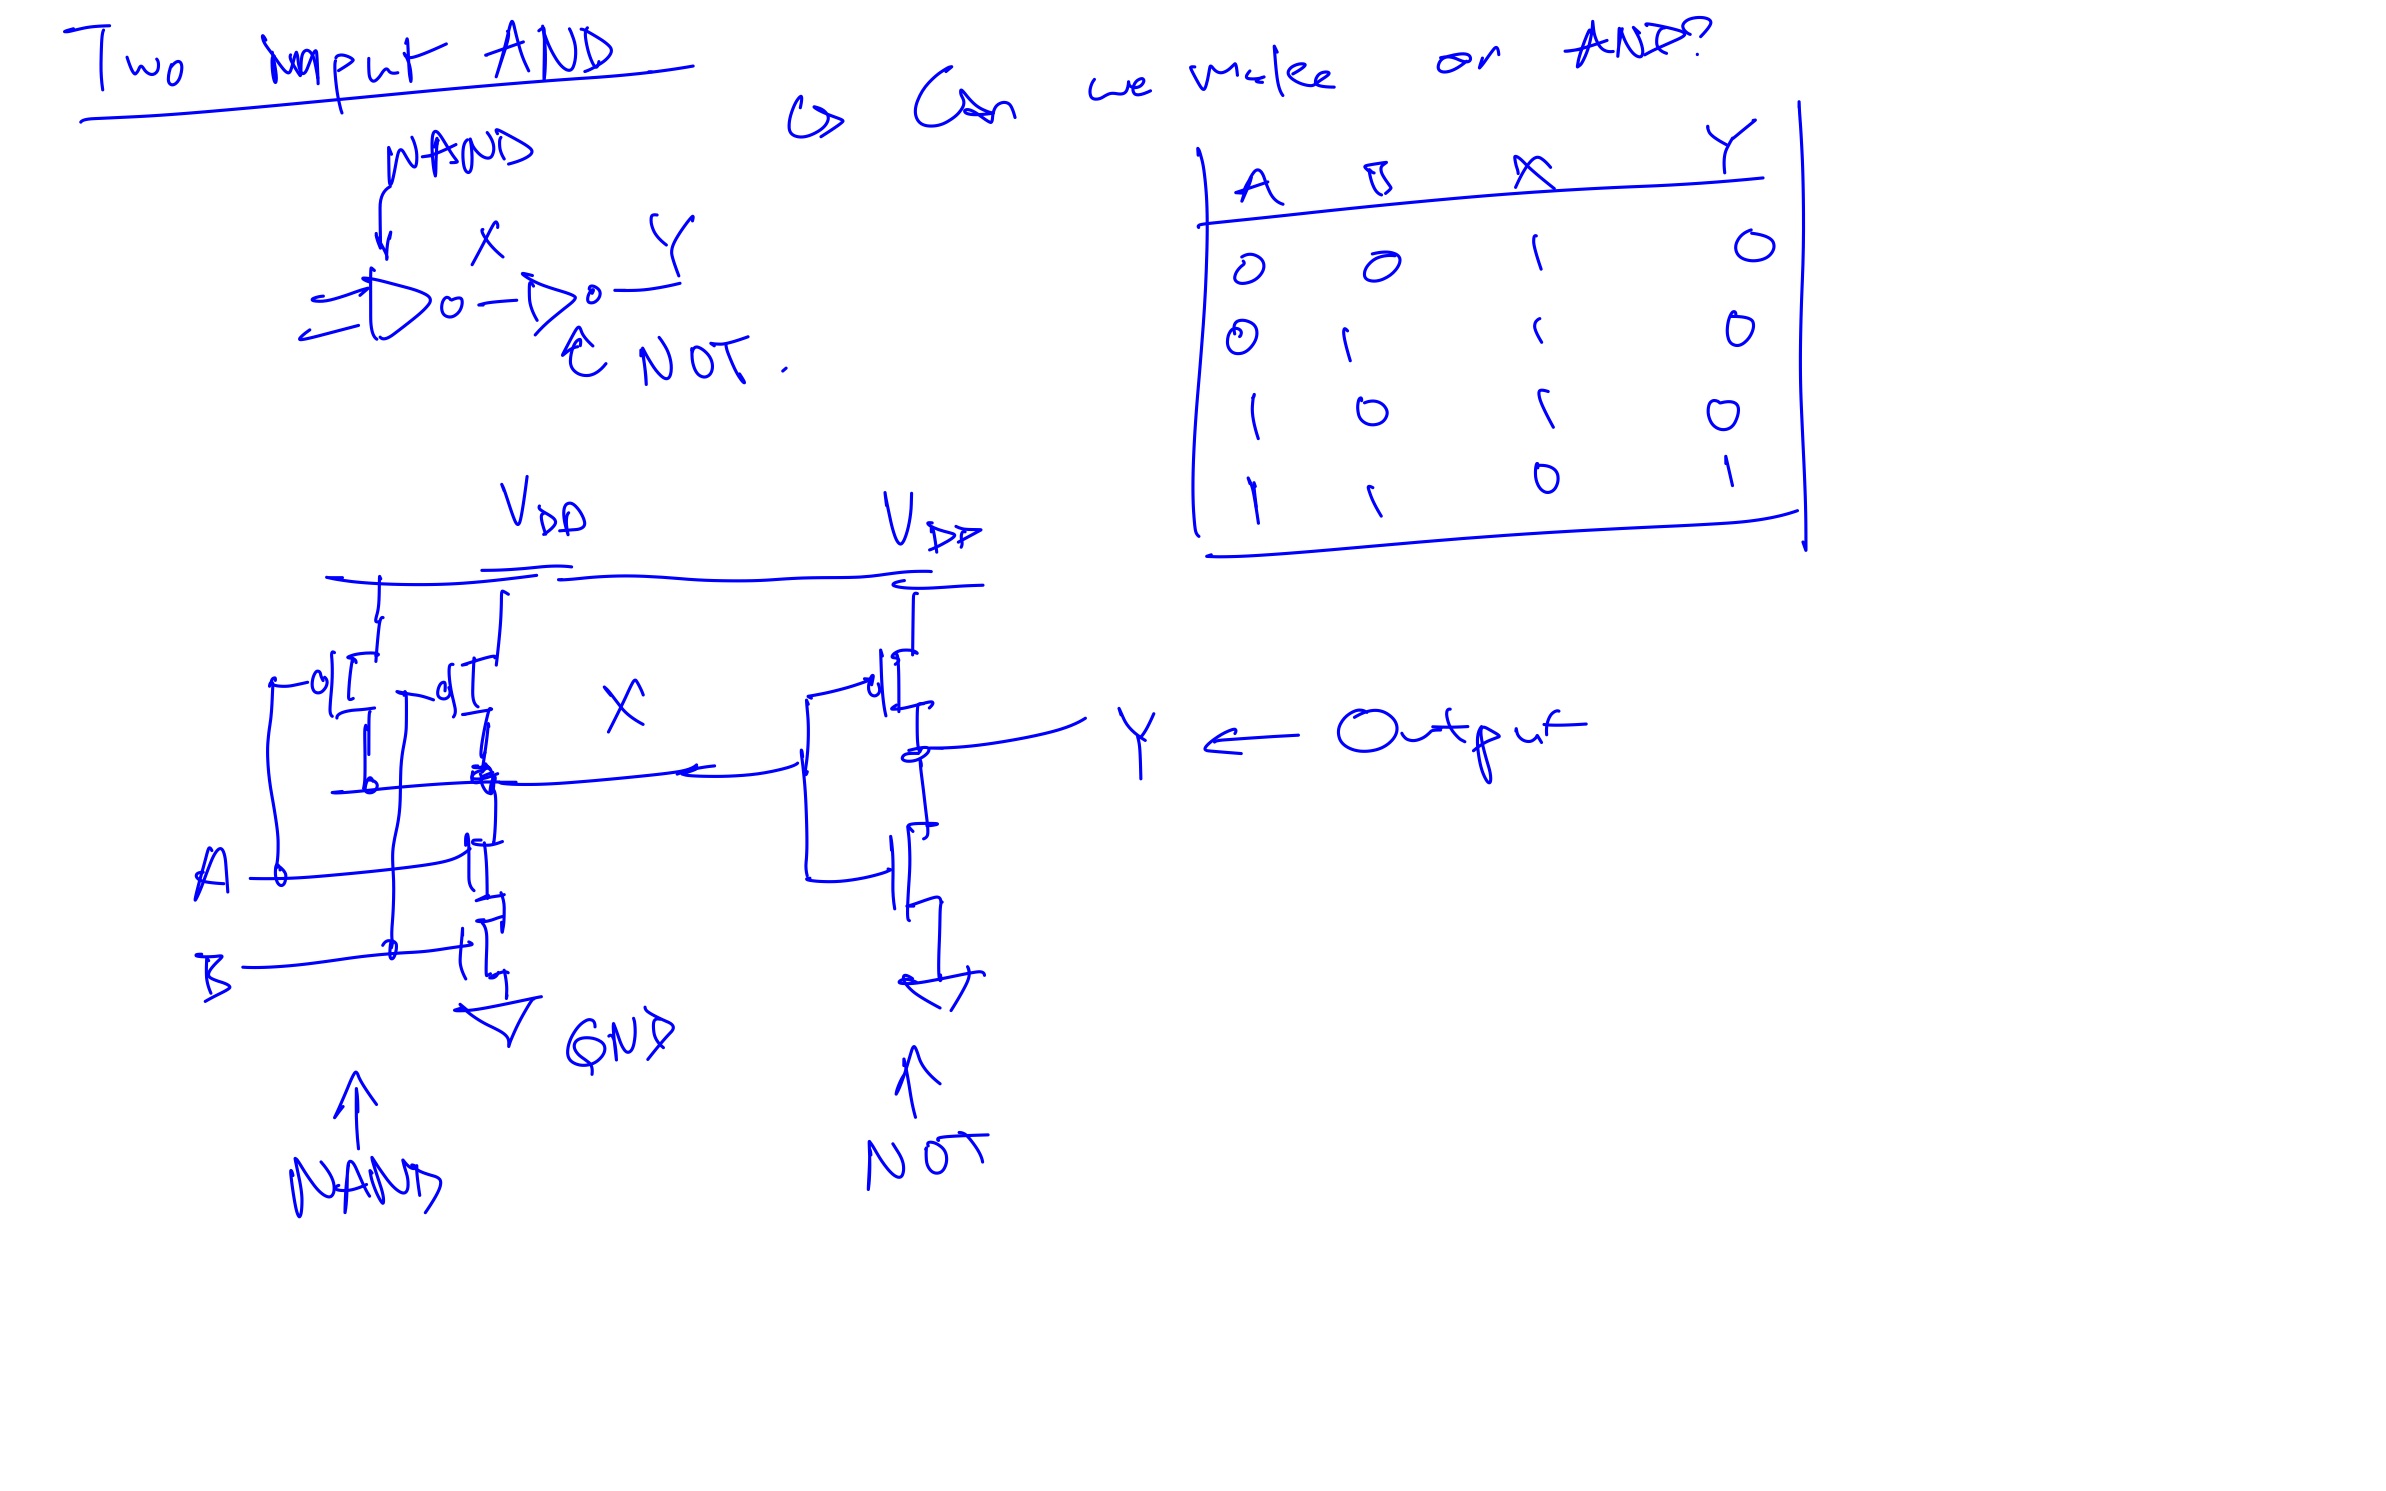 Two input AND
Can we make an AND?
NAND
X Y
NOT.
A B X Y
0 0 1 0
0 1 1 0
1 0 1 0
1 1 0 1
VDD VDD
X
Y ← Output
A
B
GND
NAND NOT